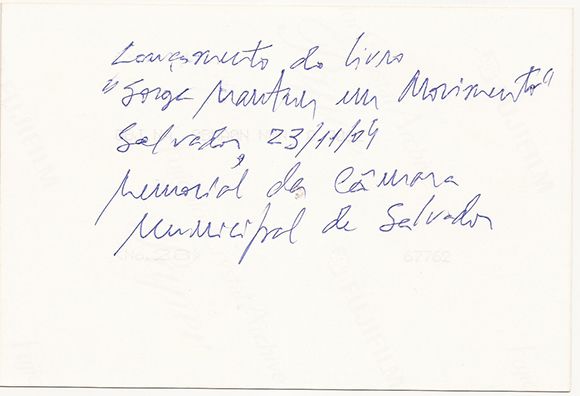 Lançamento do livro
"Jorge Mautner em Movimento"
Salvador, 23/11/04
Memorial da Câmara
Municipal de Salvador
67762